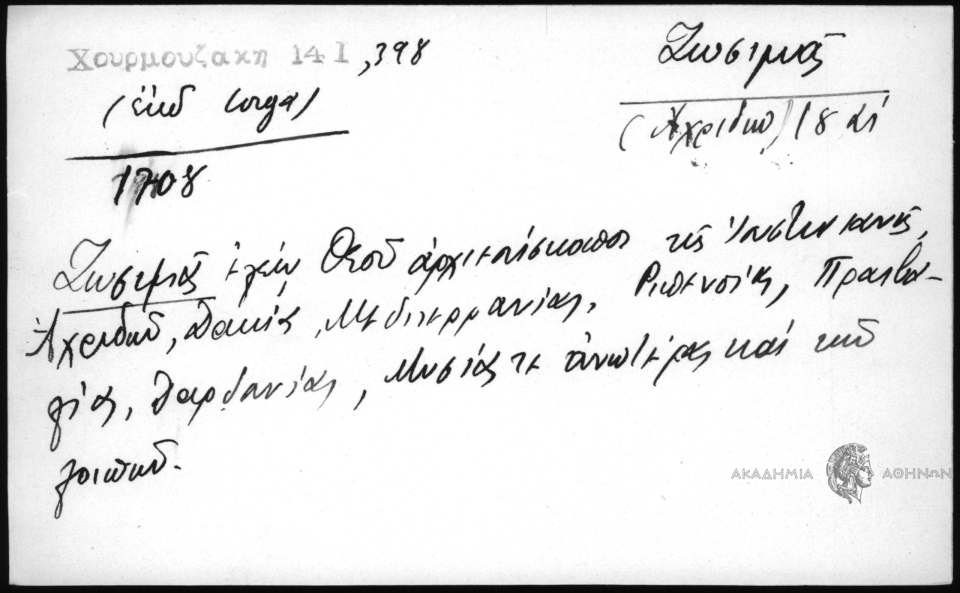 Χουρμουζακη 141,398
(ἔκδ Iorga)
1708
Ζωσιμᾶς
(Ἀχριδῶν) 18 αἰ
Ζωσιμᾶς ἐλέῳ Θεοῦ ἀρχιεπίσκοπος τῆς Ἰουστινιανῆς,
Ἀχριδῶν, Δακίας, Μεδιτερρανίας, Ριπενσίας, Πραιβα-
λίας, Δαρδανίας, Μυσίας τε ἀνωτέρας καὶ τῶν
λοιπῶν.
ΑΚΑΔΗΜΙΑ ΑΘΗΝΩΝ